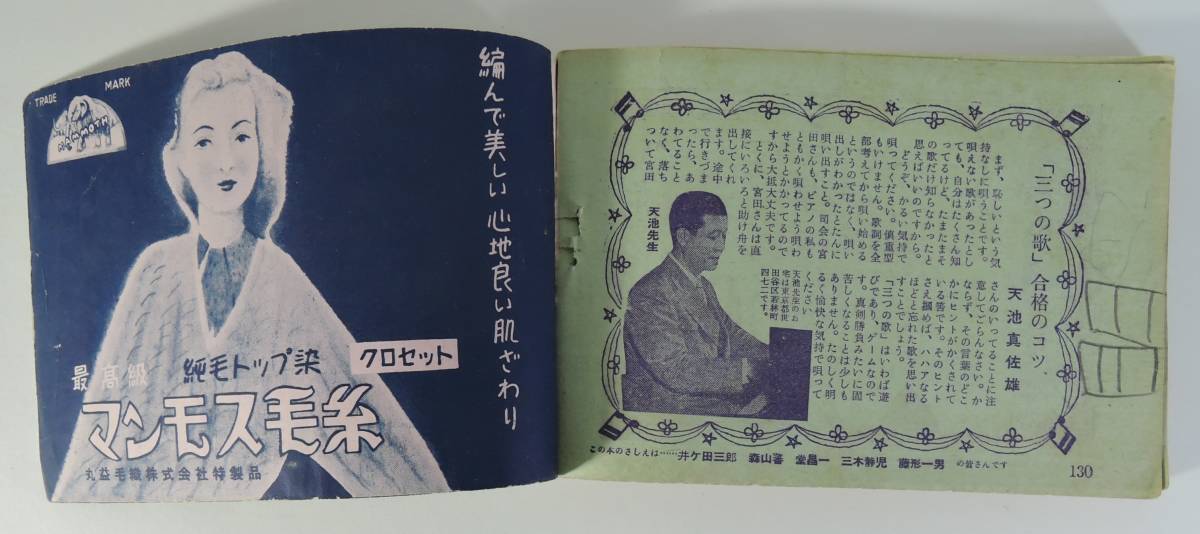 TRADE MARK
MAMMOTH
編んで美しい心地良い肌ざわり
クロセット
最高級
純毛トップ染
マンモス毛糸
丸益毛織株式会社特製品
「三つの歌」合格のコツ、
天池真佐雄
まず、恥しいという気
持なしに唄うことです。
唄えない歌があったとし
ても、自分はたくさん知
ってるけど、たまたまそ
の歌だけ知らなかったと
思えばいいのですから。
どうぞ、かるい気持で
唄ってください。慎重型
もいけません。歌詞を全
部考えてから唄い始める
というのではなく、唄い
出しがわかったとたんに
唄い出すこと。司会の宮
田さんも、ピアノの私も
ともかく唄わせよう唄わ
せようとかかってるので
すから大抵大丈夫です。
とくに、宮田さんは直
接にいろいろと助け舟を
出してくれ
ます。途中
で行きづま
ったら、あ
わてること
なく、落ち
ついて宮田
さんのいってることに注
意してごらんなさい。か
ならず、その言葉のどこ
かにヒントがかくされて
いる筈です。そのヒント
さえ摑めば、ハハアなる
ほどと忘れた歌を思い出
すことでしょう。
「三つの歌」はいわば遊
びであり、ゲームなので
す。真剣勝負みたいに固
苦しくなることは少しも
ありません。たのしく明
るく愉快な気持で唄って
ください
天池先生
天池先生のお
宅は東京都世
田谷区若林町
四七二です。
この本のさしえは……井ケ田三郎 森山善 堂昌一 三木静児 藤形一男 の皆さんです
130